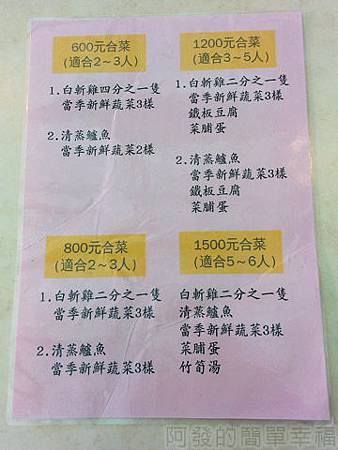 600元合菜
(適合2~3人)
1.白斬雞四分之一隻
當季新鮮蔬菜3樣
2.清蒸鱸魚
當季新鮮蔬菜2樣
1200元合菜
(適合3~5人)
1.白斬雞二分之一隻
當季新鮮蔬菜3樣
鐵板豆腐
菜脯蛋
2.清蒸鱸魚
當季新鮮蔬菜3樣
鐵板豆腐
菜脯蛋
800元合菜
(適合2~3人)
1.白斬雞二分之一隻
當季新鮮蔬菜3樣
2.清蒸鱸魚
當季新鮮蔬菜3樣
1500元合菜
(適合5~6人)
白斬雞二分之一隻
清蒸鱸魚
當季新鮮蔬菜3樣
菜脯蛋
竹筍湯
阿發的簡單幸福